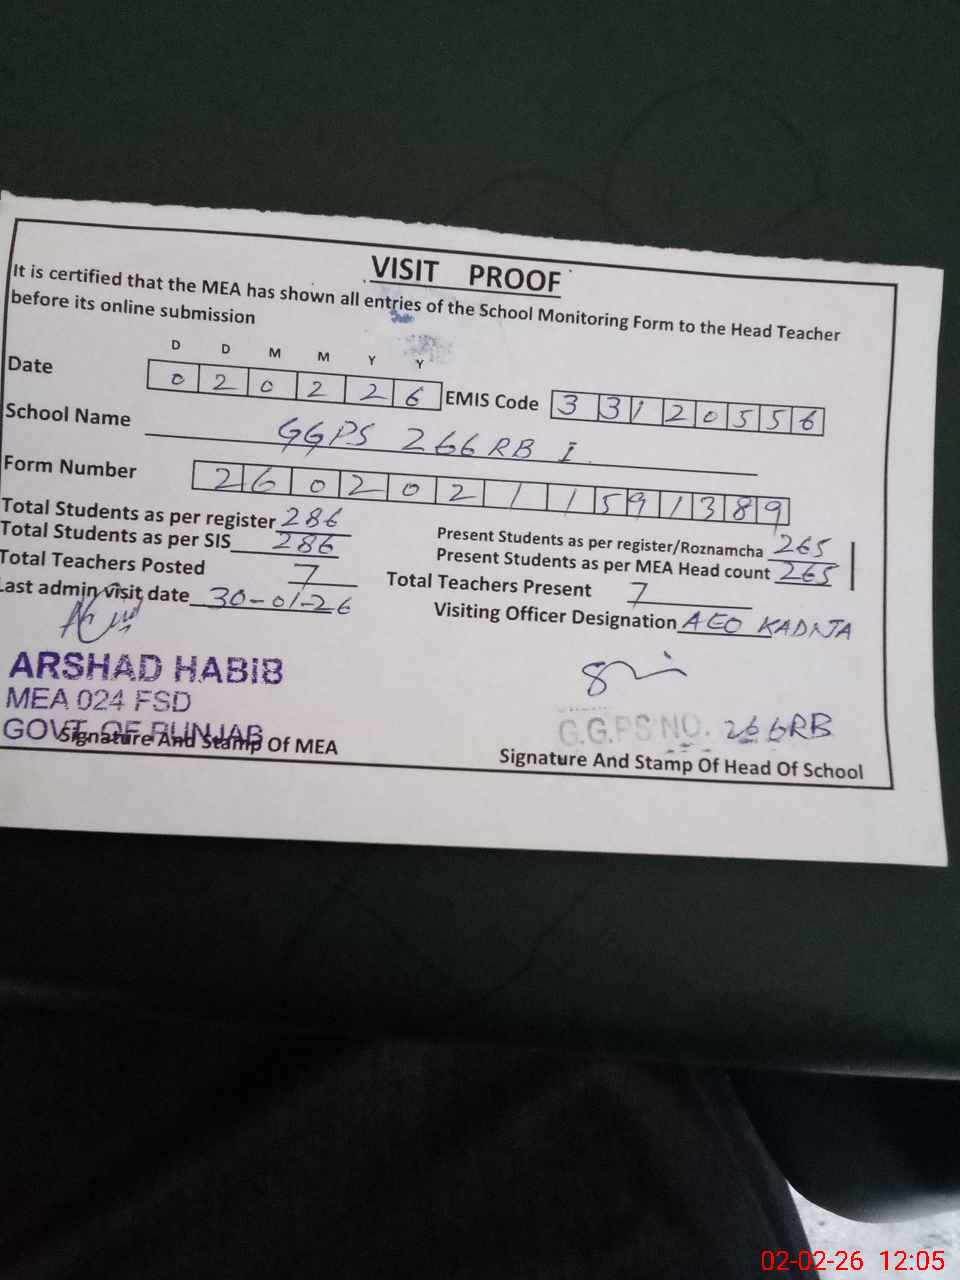 VISIT PROOF
It is certified that the MEA has shown all entries of the School Monitoring Form to the Head Teacher
before its online submission
D D M M Y Y
Date 0 2 0 2 2 6 EMIS Code 3 3 1 2 0 5 5 6
School Name GGPS 266 RB I
Form Number 2 6 0 2 0 2 1 1 5 9 1 3 8 9
Total Students as per register 286
Present Students as per register/Roznamcha 265
Total Students as per SIS 286
Present Students as per MEA Head count 265
Total Teachers Posted 7
Total Teachers Present 7
Last admin visit date 30-01-26
Visiting Officer Designation AEO
ARSHAD HABIB
MEA 024 FSD
GOVT. OF PUNJAB
Signature And Stamp Of MEA
G.G.PS NO. 266RB
Signature And Stamp Of Head Of School
02-02-26 12:05